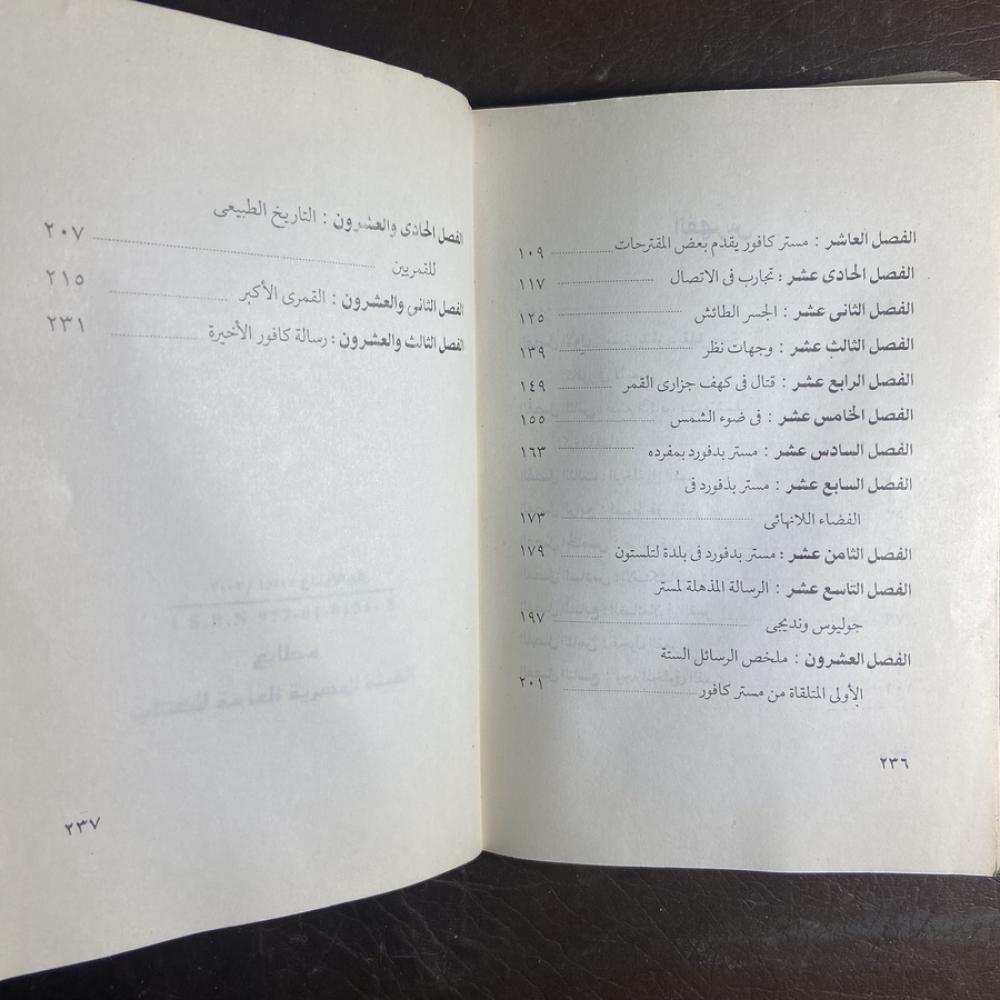 الفصل العاشر : مستر كافور يقدم بعض المقترحات ........ ١٠٩
الفصل الحادى عشر : تجارب فى الاتصال ........ ١١٧
الفصل الثانى عشر : الجسر الطائش ........ ١٢٥
الفصل الثالث عشر : وجهات نظر ........ ١٣٩
الفصل الرابع عشر : قتال فى كهف جزارى القمر ........ ١٤٩
الفصل الخامس عشر : فى ضوء الشمس ........ ١٥٥
الفصل السادس عشر : مستر بدفورد بمفرده ........ ١٦٣
الفصل السابع عشر : مستر بذفورد فى
الفضاء اللانهائى ........ ١٧٣
الفصل الثامن عشر : مستر بدفورد فى بلدة لتلستون ........ ١٧٩
الفصل التاسع عشر : الرسالة المذهلة لمستر
جوليوس ونديجى ........ ١٩٧
الفصل العشرون : ملخص الرسائل الستة
الأولى المتلقاة من مستر كافور ........ ٢٠١
٢٣٦
الفصل الحادى والعشرون : التاريخ الطبيعى
للقمريين ........ ٢٠٧
الفصل الثانى والعشرون : القمرى الأكبر ........ ٢١٥
الفصل الثالث والعشرون : رسالة كافور الأخيرة ........ ٢٣١
٢٣٧